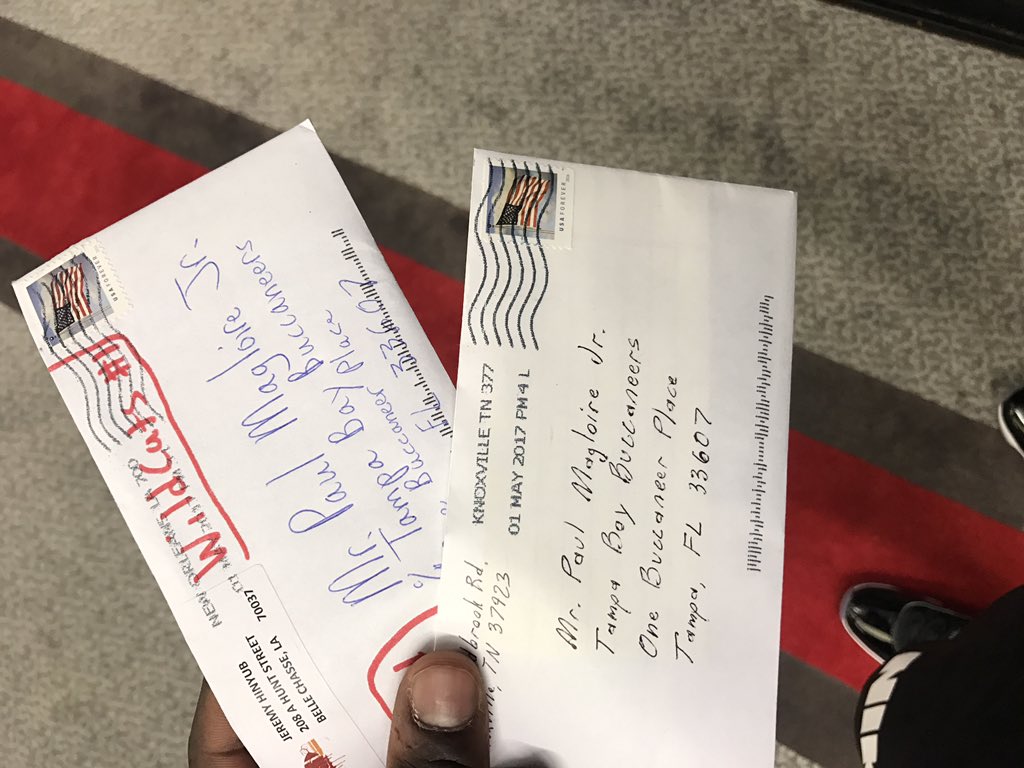 USA FOREVER
#1
WildCats
NEW ORLEANS LA 700
JEREMY HINYUB
208 A HUNT STREET
BELLE CHASSE, LA 70037
Mr. Paul Magloire Jr.
c/o Tampa Bay Buccaneers
Buccaneer Place
33607
USA FOREVER
KNOXVILLE TN 377
01 MAY 2017 PM 4 L
brook Rd.
TN 37923
Mr. Paul Magloire Jr.
Tampa Bay Buccaneers
One Buccaneer Place
Tampa, FL 33607